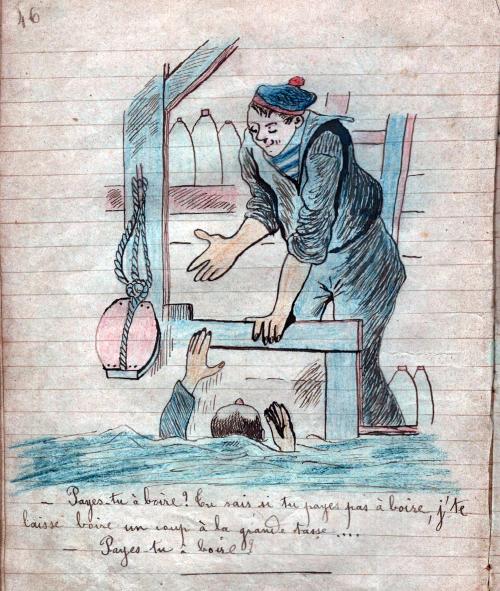 46
— Payes-tu à boire? Tu sais si tu payes pas à boire, j'te
laisse boire un coup à la grande tasse ....
— Payes-tu à boire!